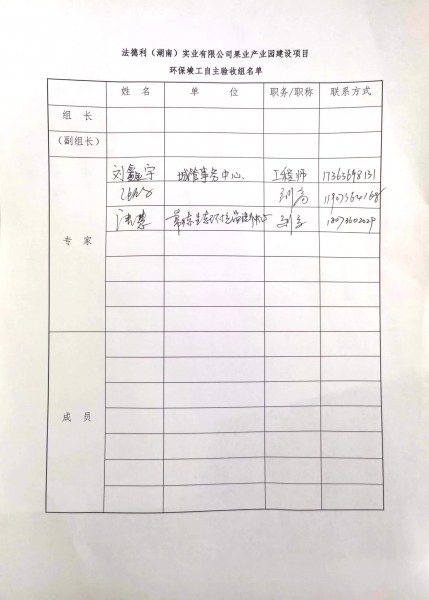 法德利（湖南）实业有限公司果业产业园建设项目
环保竣工自主验收组名单
姓 名 单 位 职务/职称 联系方式
组 长
（副组长）
刘鑫宇 城管事务中心 工程师 17363698131
副高
专 家
18073602029
成 员